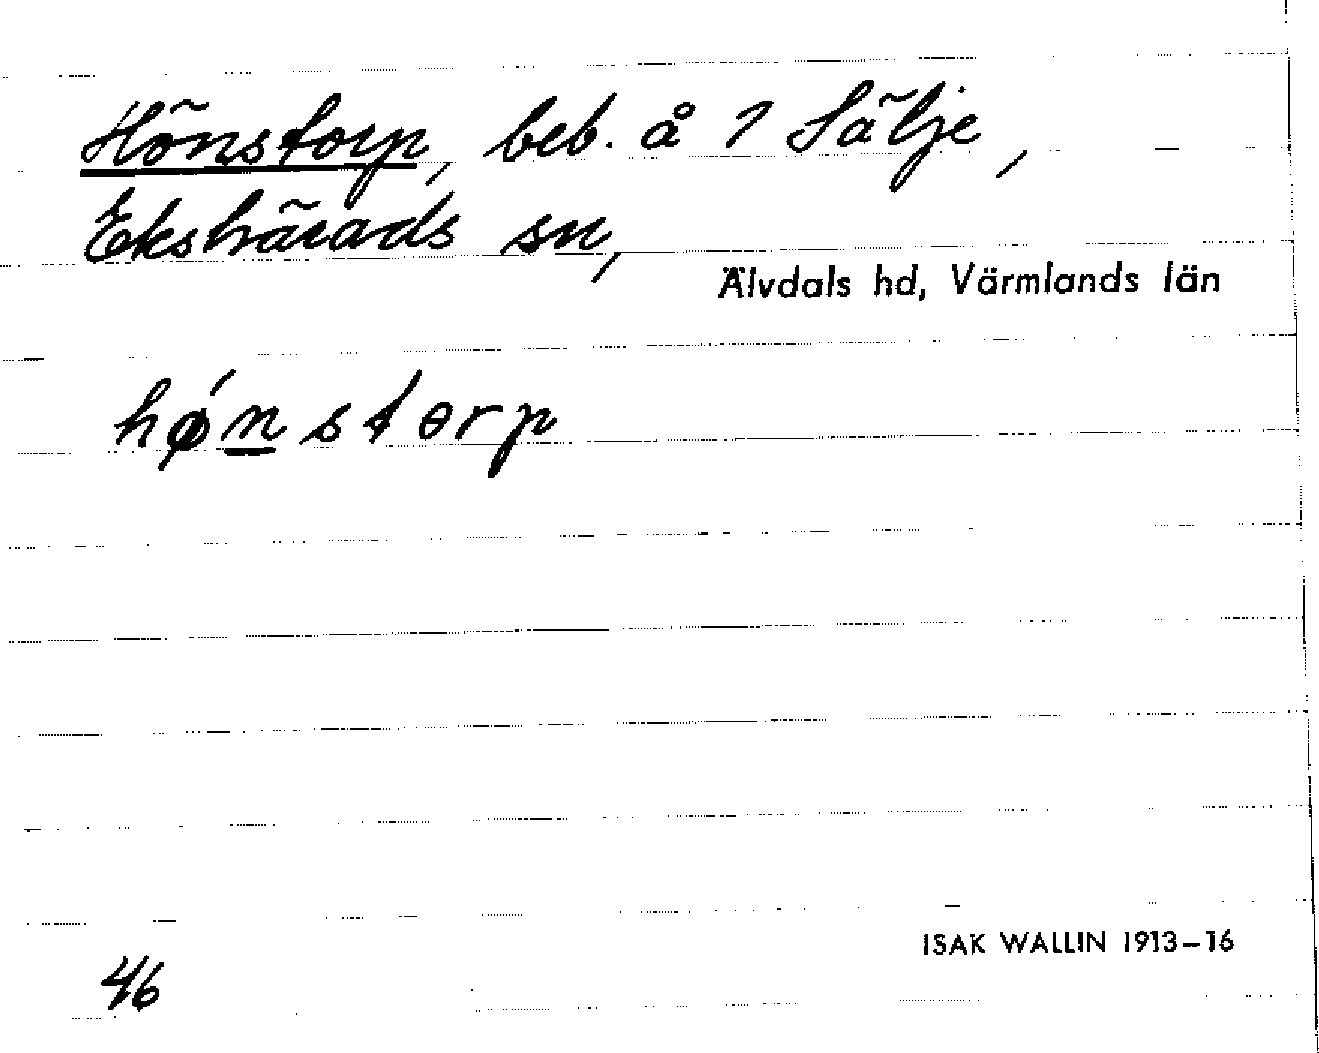 Hönstorp, beb. å 1 Sälje,
Ekshärads sn,
Älvdals hd, Värmlands län
hǿnstorp
ISAK WALLIN 1913–16
46